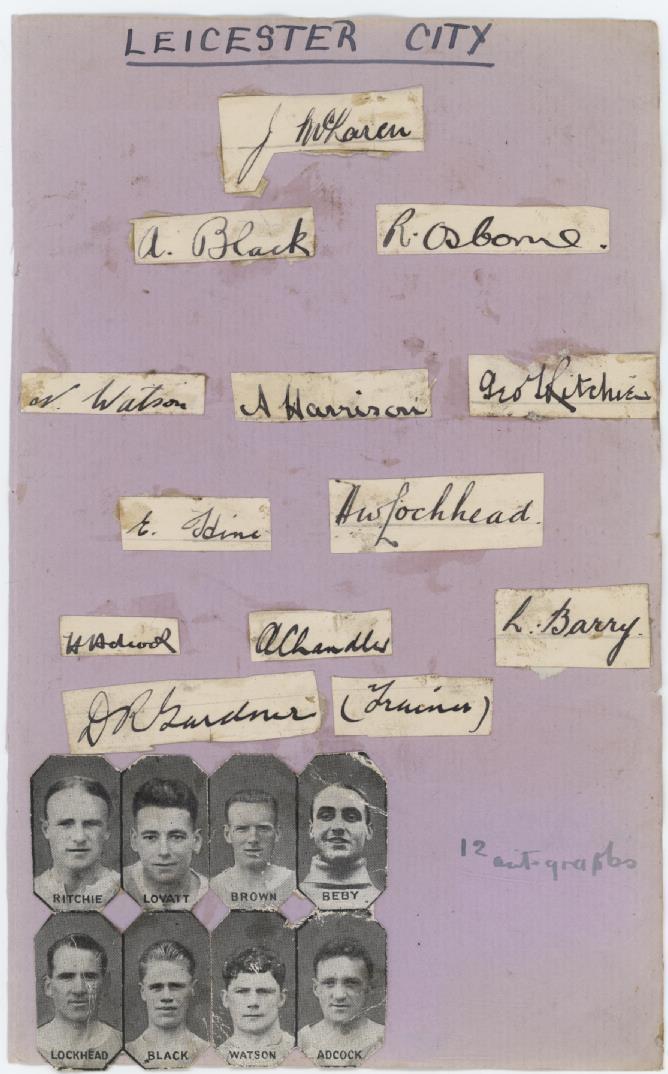 LEICESTER CITY
J McLaren
A. Black R. Osborne.
N. Watson A Harrison Geo T Ritchie
E. Hine A W Lochhead.
H Adcock A Chandler L. Barry.
D R Gardner (Trainer)
RITCHIE LOVATT BROWN BEBY
12 autographs
LOCKHEAD BLACK WATSON ADCOCK